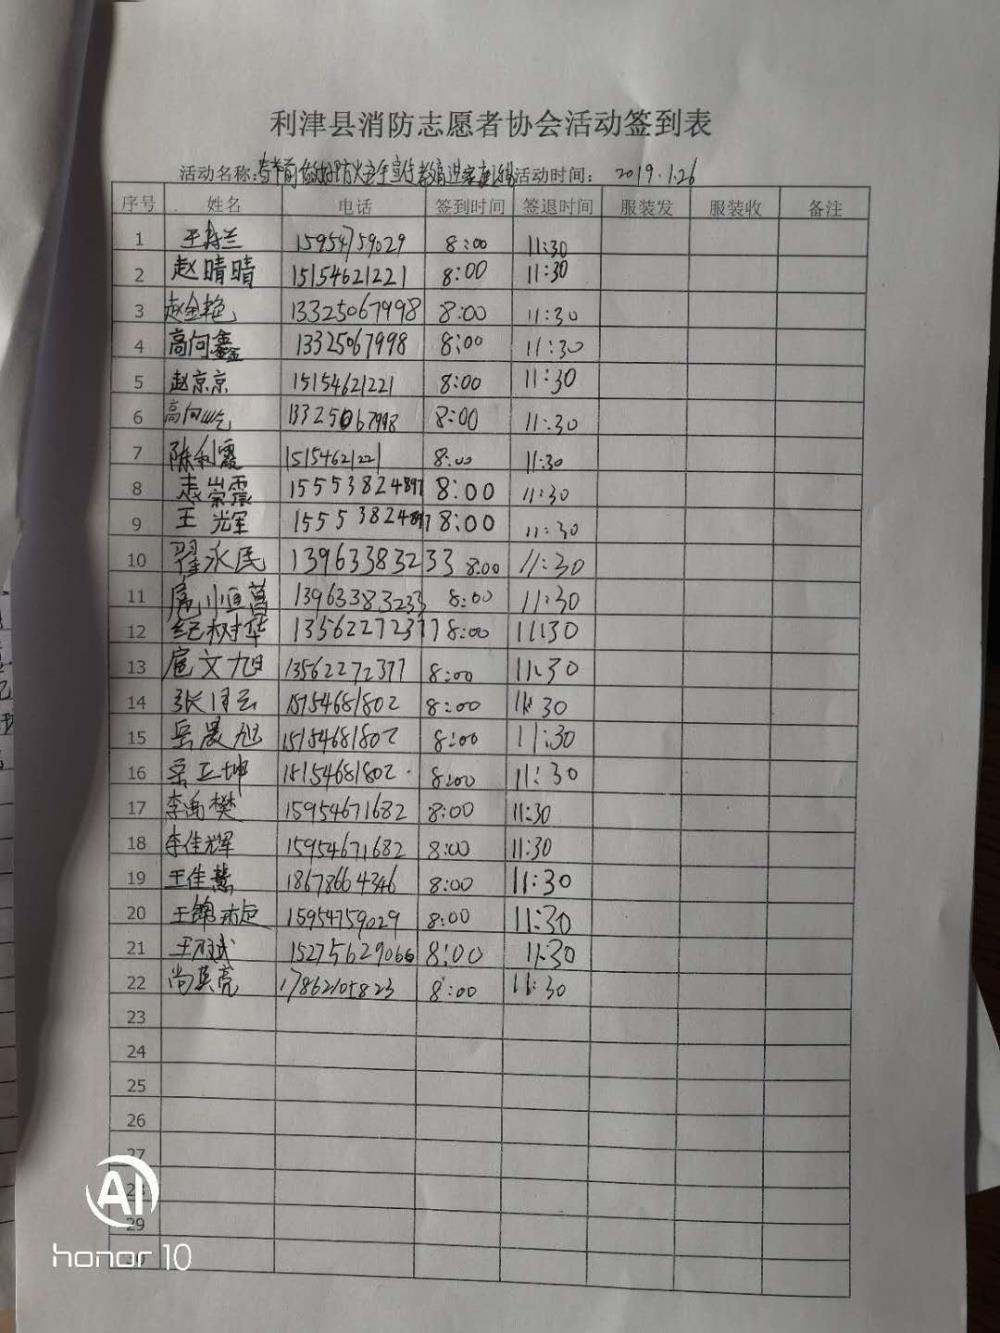 利津县消防志愿者协会活动签到表
活动名称: 春节前 防火安全宣传教育进家庭 活动时间: 2019.1.26
序号 姓名 电话 签到时间 签退时间 服装发 服装收 备注
1 王 兰 15954759029 8:00 11:30
2 赵晴晴 15154621221 8:00 11:30
3 赵金艳 13325067998 8:00 11:30
4 高向鑫 13325067998 8:00 11:30
5 赵京京 15154621221 8:00 11:30
6 高向屹 13325067998 8:00 11:30
7 陈利霞 15154621221 8:00 11:30
8 崇霖 15553824897 8:00 11:30
9 王光辉 15553824897 8:00 11:30
10 翟永民 13963383233 8:00 11:30
11 扈 恒菖 13963383233 8:00 11:30
12 纪树华 13562272377 8:00 11:30
13 扈文旭 13562272377 8:00 11:30
14 张 云 15154681802 8:00 11:30
15 岳晨旭 15154681802 8:00 11:30
16 岳正坤 15154681802 8:00 11:30
17 李 樊 15954671682 8:00 11:30
18 李佳辉 15954671682 8:00 11:30
19 王佳慧 18678664346 8:00 11:30
20 王锦 15954759029 8:00 11:30
21 王 斌 15275629066 8:00 11:30
22 尚英亮 17862105823 8:00 11:30
23
24
25
26
27
28
29
30
AI
honor 10